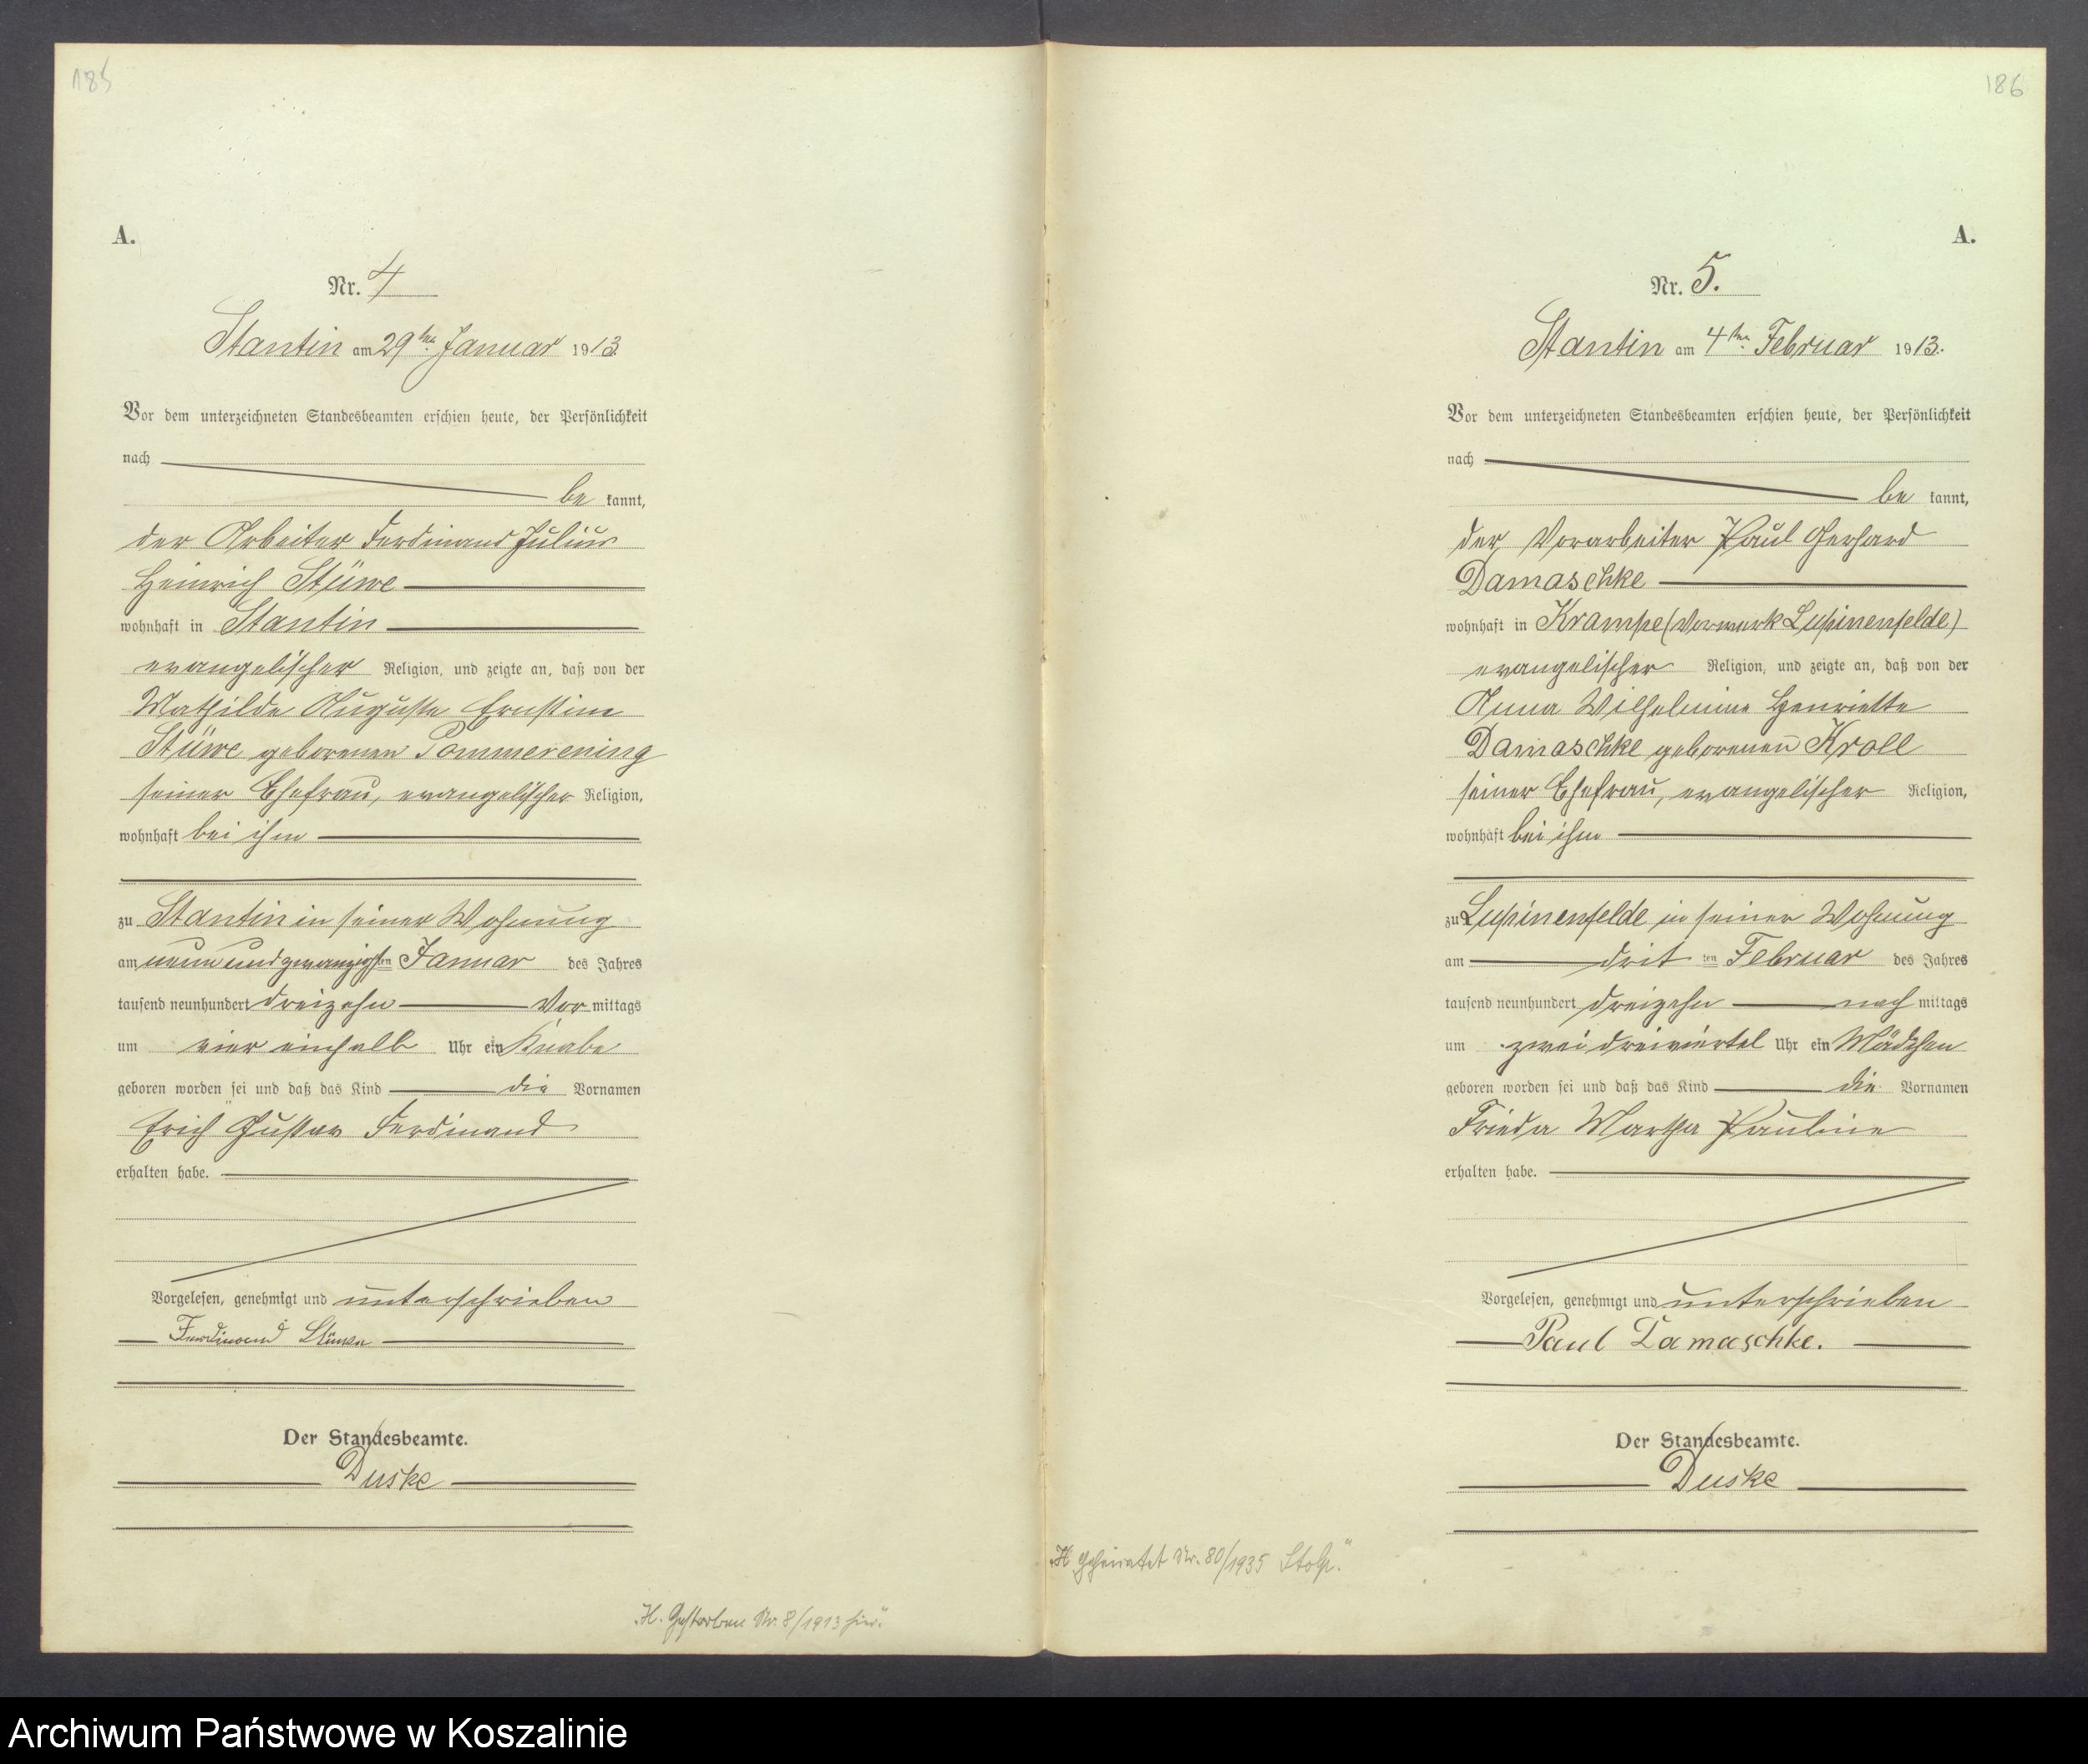 185
A.
Nr. 4
Stantin am 29ten Januar 1913.
Vor dem unterzeichneten Standesbeamten erschien heute, der Persönlichkeit
nach
be kannt,
der Arbeiter Ferdinand Julius
Heinrich Stüwe
wohnhaft in Stantin
evangelischer Religion, und zeigte an, daß von der
Mathilde Auguste Ernstine
Stüwe geborenen Pommerening
seiner Ehefrau, evangelischer Religion,
wohnhaft bei ihm
zu Stantin in seiner Wohnung
am neunundzwanzigsten Januar des Jahres
tausend neunhundert dreizehn Vor mittags
um vier einhalb Uhr ein Knabe
geboren worden sei und daß das Kind die Vornamen
Erich Gustav Ferdinand
erhalten habe.
Vorgelesen, genehmigt und unterschrieben
Ferdinand Stüwe
Der Standesbeamte.
Duske
"H. Gestorben Nr. 8/1913 hier."
186
A.
Nr. 5.
Stantin am 4ten Februar 1913.
Vor dem unterzeichneten Standesbeamten erschien heute, der Persönlichkeit
nach
be kannt,
der Vorarbeiter Paul Gerhard
Damaschke
wohnhaft in Krampe (Vorwerk Lupinenfelde)
evangelischer Religion, und zeigte an, daß von der
Anna Wilhelmine Henriette
Damaschke geborenen Kroll
seiner Ehefrau, evangelischer Religion,
wohnhaft bei ihm
zu Lupinenfelde in seiner Wohnung
am drit ten Februar des Jahres
tausend neunhundert dreizehn nach mittags
um zwei dreiviertel Uhr ein Mädchen
geboren worden sei und daß das Kind die Vornamen
Frieda Martha Pauline
erhalten habe.
Vorgelesen, genehmigt und unterschrieben
Paul Damaschke.
Der Standesbeamte.
Duske
"H geheiratet Nr. 80/1935 Stolp."
Archiwum Państwowe w Koszalinie